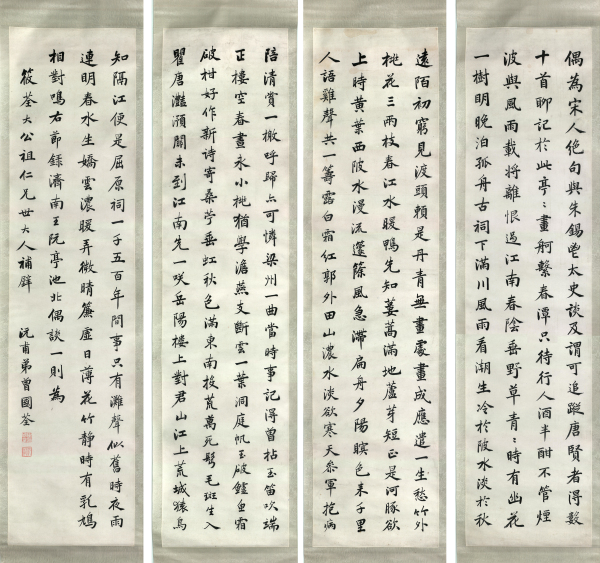 偶為宋人絶句與朱錫鬯太史談及謂可追蹤唐賢者得數
十首聊記於此亭〻畫舸繫春潭只待行人酒半酣不管煙
波與風雨載將離恨過江南春陰垂野草青〻時有幽花
一樹明晚泊孤舟古祠下滿川風雨看潮生冷於陂水淡於秋
遠陌初窮見渡頭賴是丹青無畫處畫成應遣一生愁竹外
桃花三兩枝春江水暖鴨先知蔞蒿滿地蘆芽短正是河豚欲
上時黃葉西陂水漫流籧篨風急滯扁舟夕陽暝色来千里
人語雞聲共一籌露白霜紅郭外田山濃水淡欲寒天參軍抱病
陪清賞一檄呼歸亦可憐梁州一曲當時事記得曾拈玉笛吹端
正樓空春晝永小桃猶學澹燕支斷雲一葉洞庭帆玉破鱸魚霜
破柑好作新诗寄桑苧垂虹秋色滿東南投荒萬死鬢毛斑生入
瞿唐灩澦關未到江南先一咲岳陽樓上對君山江上荒城猿鳥
知隔江便是屈原祠一千五百年間事只有灘聲似舊時夜雨
連明春水生嬌雲濃暖弄微晴簾虛日薄花竹靜時有乳鳩
相對鳴右節錄濟南王阮亭池北偶談一則為
筱荃大公祖仁兄世大人補壁 沅甫弟曾國荃